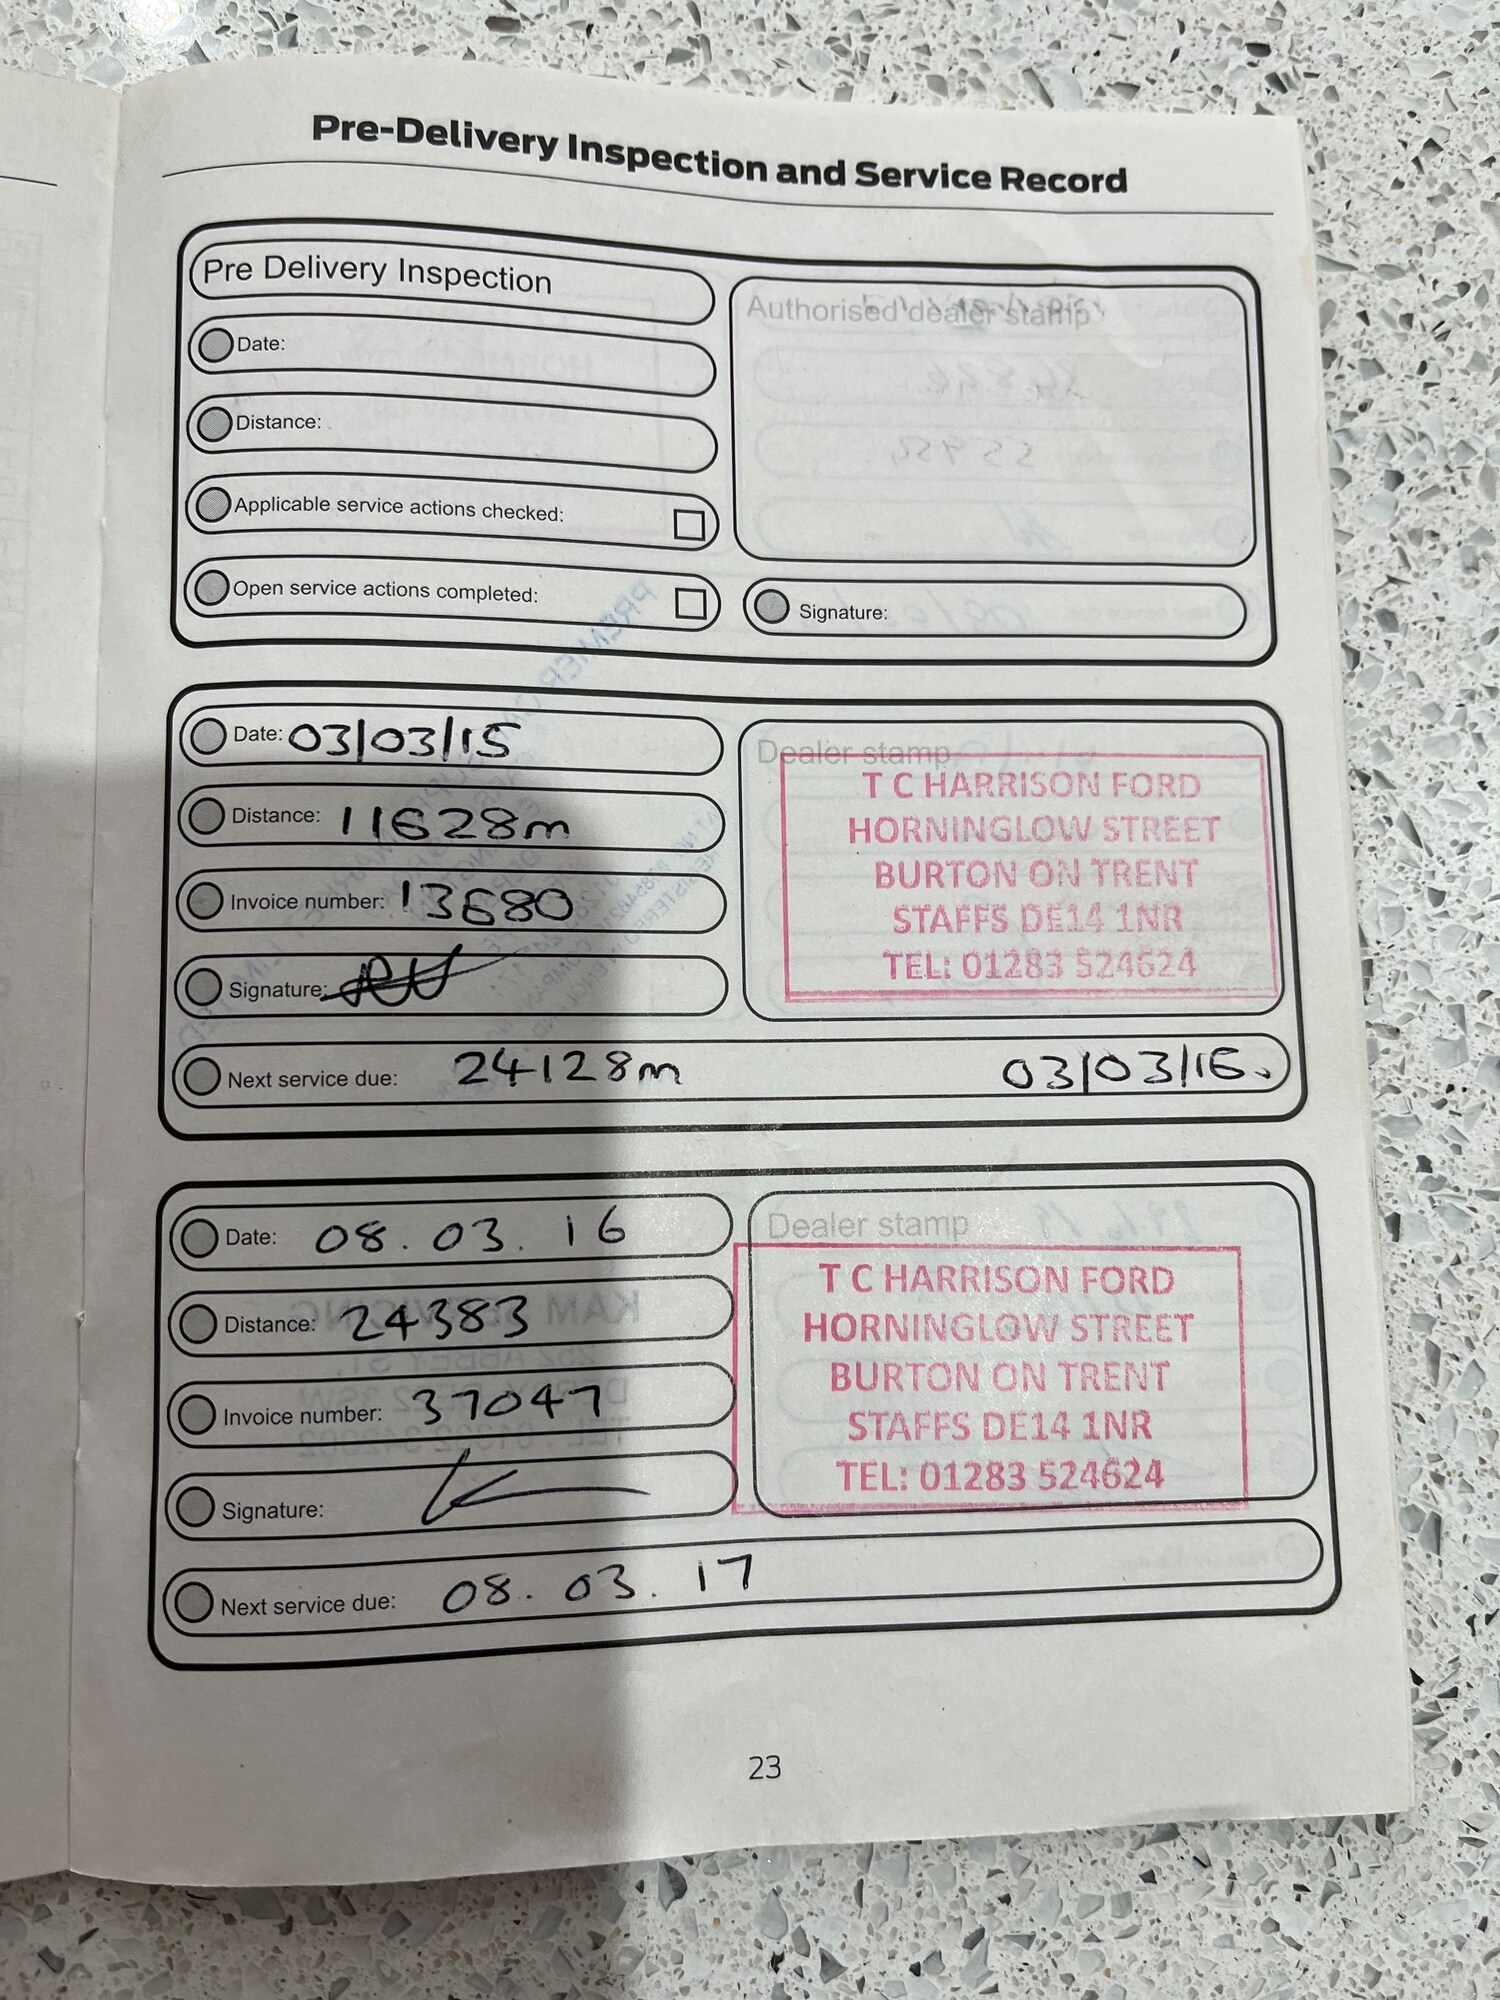 Pre-Delivery Inspection and Service Record
Pre Delivery Inspection
Date:
Distance:
Applicable service actions checked:
Open service actions completed:
Authorised dealer stamp
Signature:
Date: 03/03/15
Distance: 11628m
Invoice number: 13680
Signature:
Next service due: 24128m 03/03/16.
Dealer stamp
T C HARRISON FORD
HORNINGLOW STREET
BURTON ON TRENT
STAFFS DE14 1NR
TEL: 01283 524624
Date: 08.03.16
Distance: 24383
Invoice number: 37047
Signature:
Next service due: 08.03.17
Dealer stamp
T C HARRISON FORD
HORNINGLOW STREET
BURTON ON TRENT
STAFFS DE14 1NR
TEL: 01283 524624
23